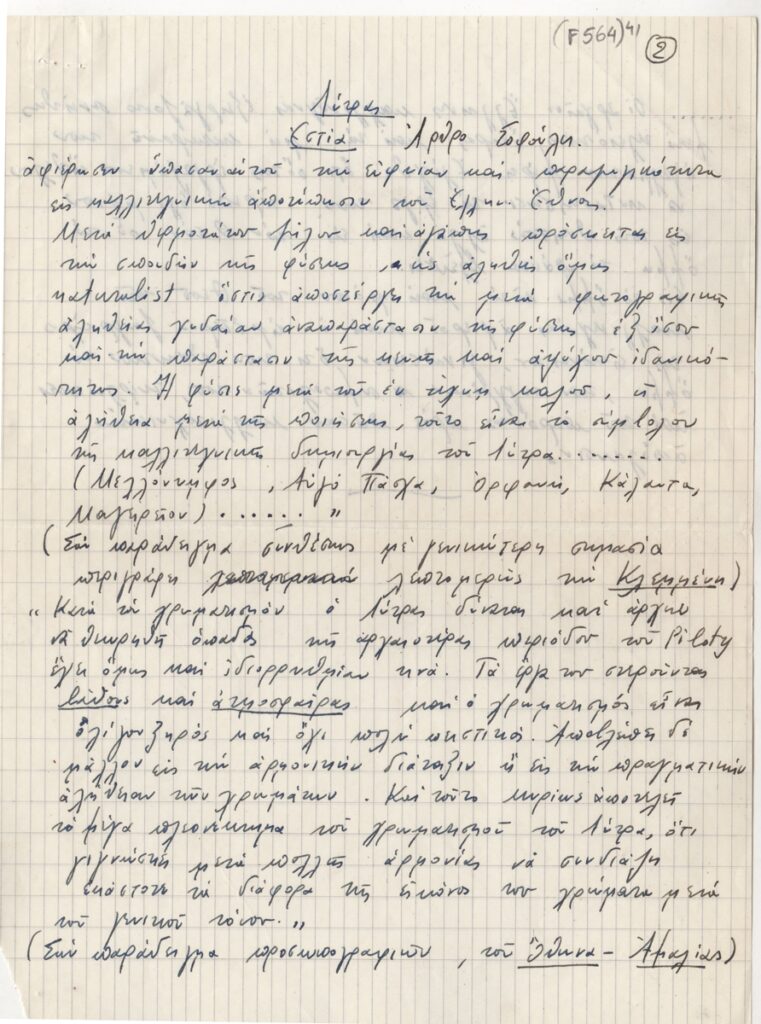 (F564)⁴¹ ②
Λύτρας
Ἑστία Ἄρθρο Σοφούλη.
ἀφιέρωσεν ἅπασαν αὐτοῦ τὴν εὐφυΐαν καὶ παραγωγικότητα
εἰς καλλιτεχνικὴν ἀποτύπωσιν τοῦ Ἑλλην. Ἔθνους.
Μετὰ θερμοτάτου ζήλου καὶ ἀγάπης πρόσκειται εἰς
τὴν σπουδὴν τῆς φύσεως, ὡς ἀληθὴς ὅμως
naturalist ὅστις ἀποστέργει τὴν μετὰ φωτογραφικῆς
ἀληθείας χυδαίαν ἀναπαράστασιν τῆς φύσεως ἐξ ἴσου
καὶ τὴν παράστασιν τῆς κενῆς καὶ ἀψύχου ἰδανικό-
τητος. Ἡ φύσις μετὰ τοῦ ἐν τέχνῃ καλοῦ, ἡ
ἀλήθεια μετὰ τῆς ποιήσεως, τοῦτο εἶναι τὸ σύμβολον
τῆς καλλιτεχνικῆς δημιουργίας τοῦ Λύτρα........
(Μελλόνυμφος, Αὐγὸ Πάσχα, Ὀρφανή, Κάλαντα,
Μαγειρεῖον)...... "
(Σὰν παράδειγμα συνθέσεως μὲ γενικώτερη σημασία
περιγράφει λεπτομερῶς τὴν Κλεμμένη)
"Κατὰ τὸ χρωματισμὸν ὁ Λύτρας δύναται κατ' ἀρχὴν
νὰ θεωρηθῇ ὀπαδὸς τῆς ἀρχαιοτέρας περιόδου τοῦ Piloty
ἔχει ὅμως καὶ ἰδιορρυθμίαν τινά. Τὰ ἔργα του στεροῦνται
βάθους καὶ ἀτμοσφαίρας καὶ ὁ χρωματισμός εἶναι
ὀλίγον ξηρὸς καὶ ὄχι πολὺ πειστικός. Ἀποβλέπει δὲ
μᾶλλον εἰς τὴν ἁρμονικὴν διάταξιν ἢ εἰς τὴν πραγματικὴν
ἀλήθειαν τῶν χρωμάτων. Καὶ τοῦτο κυρίως ἀποτελεῖ
τὸ μέγα πλεονέκτημα τοῦ χρωματισμοῦ τοῦ Λύτρα, ὅτι
γιγνώσκει μετὰ πολλῆς ἁρμονίας νὰ συνδιάζῃ
ἑκάστοτε τὰ διάφορα τῆς εἰκόνος του χρώματα μετὰ
τοῦ γενικοῦ τόνου."
(Σὰν παράδειγμα προσωπογραφιῶν, τοῦ Ὄθωνα - Ἀμαλίας)